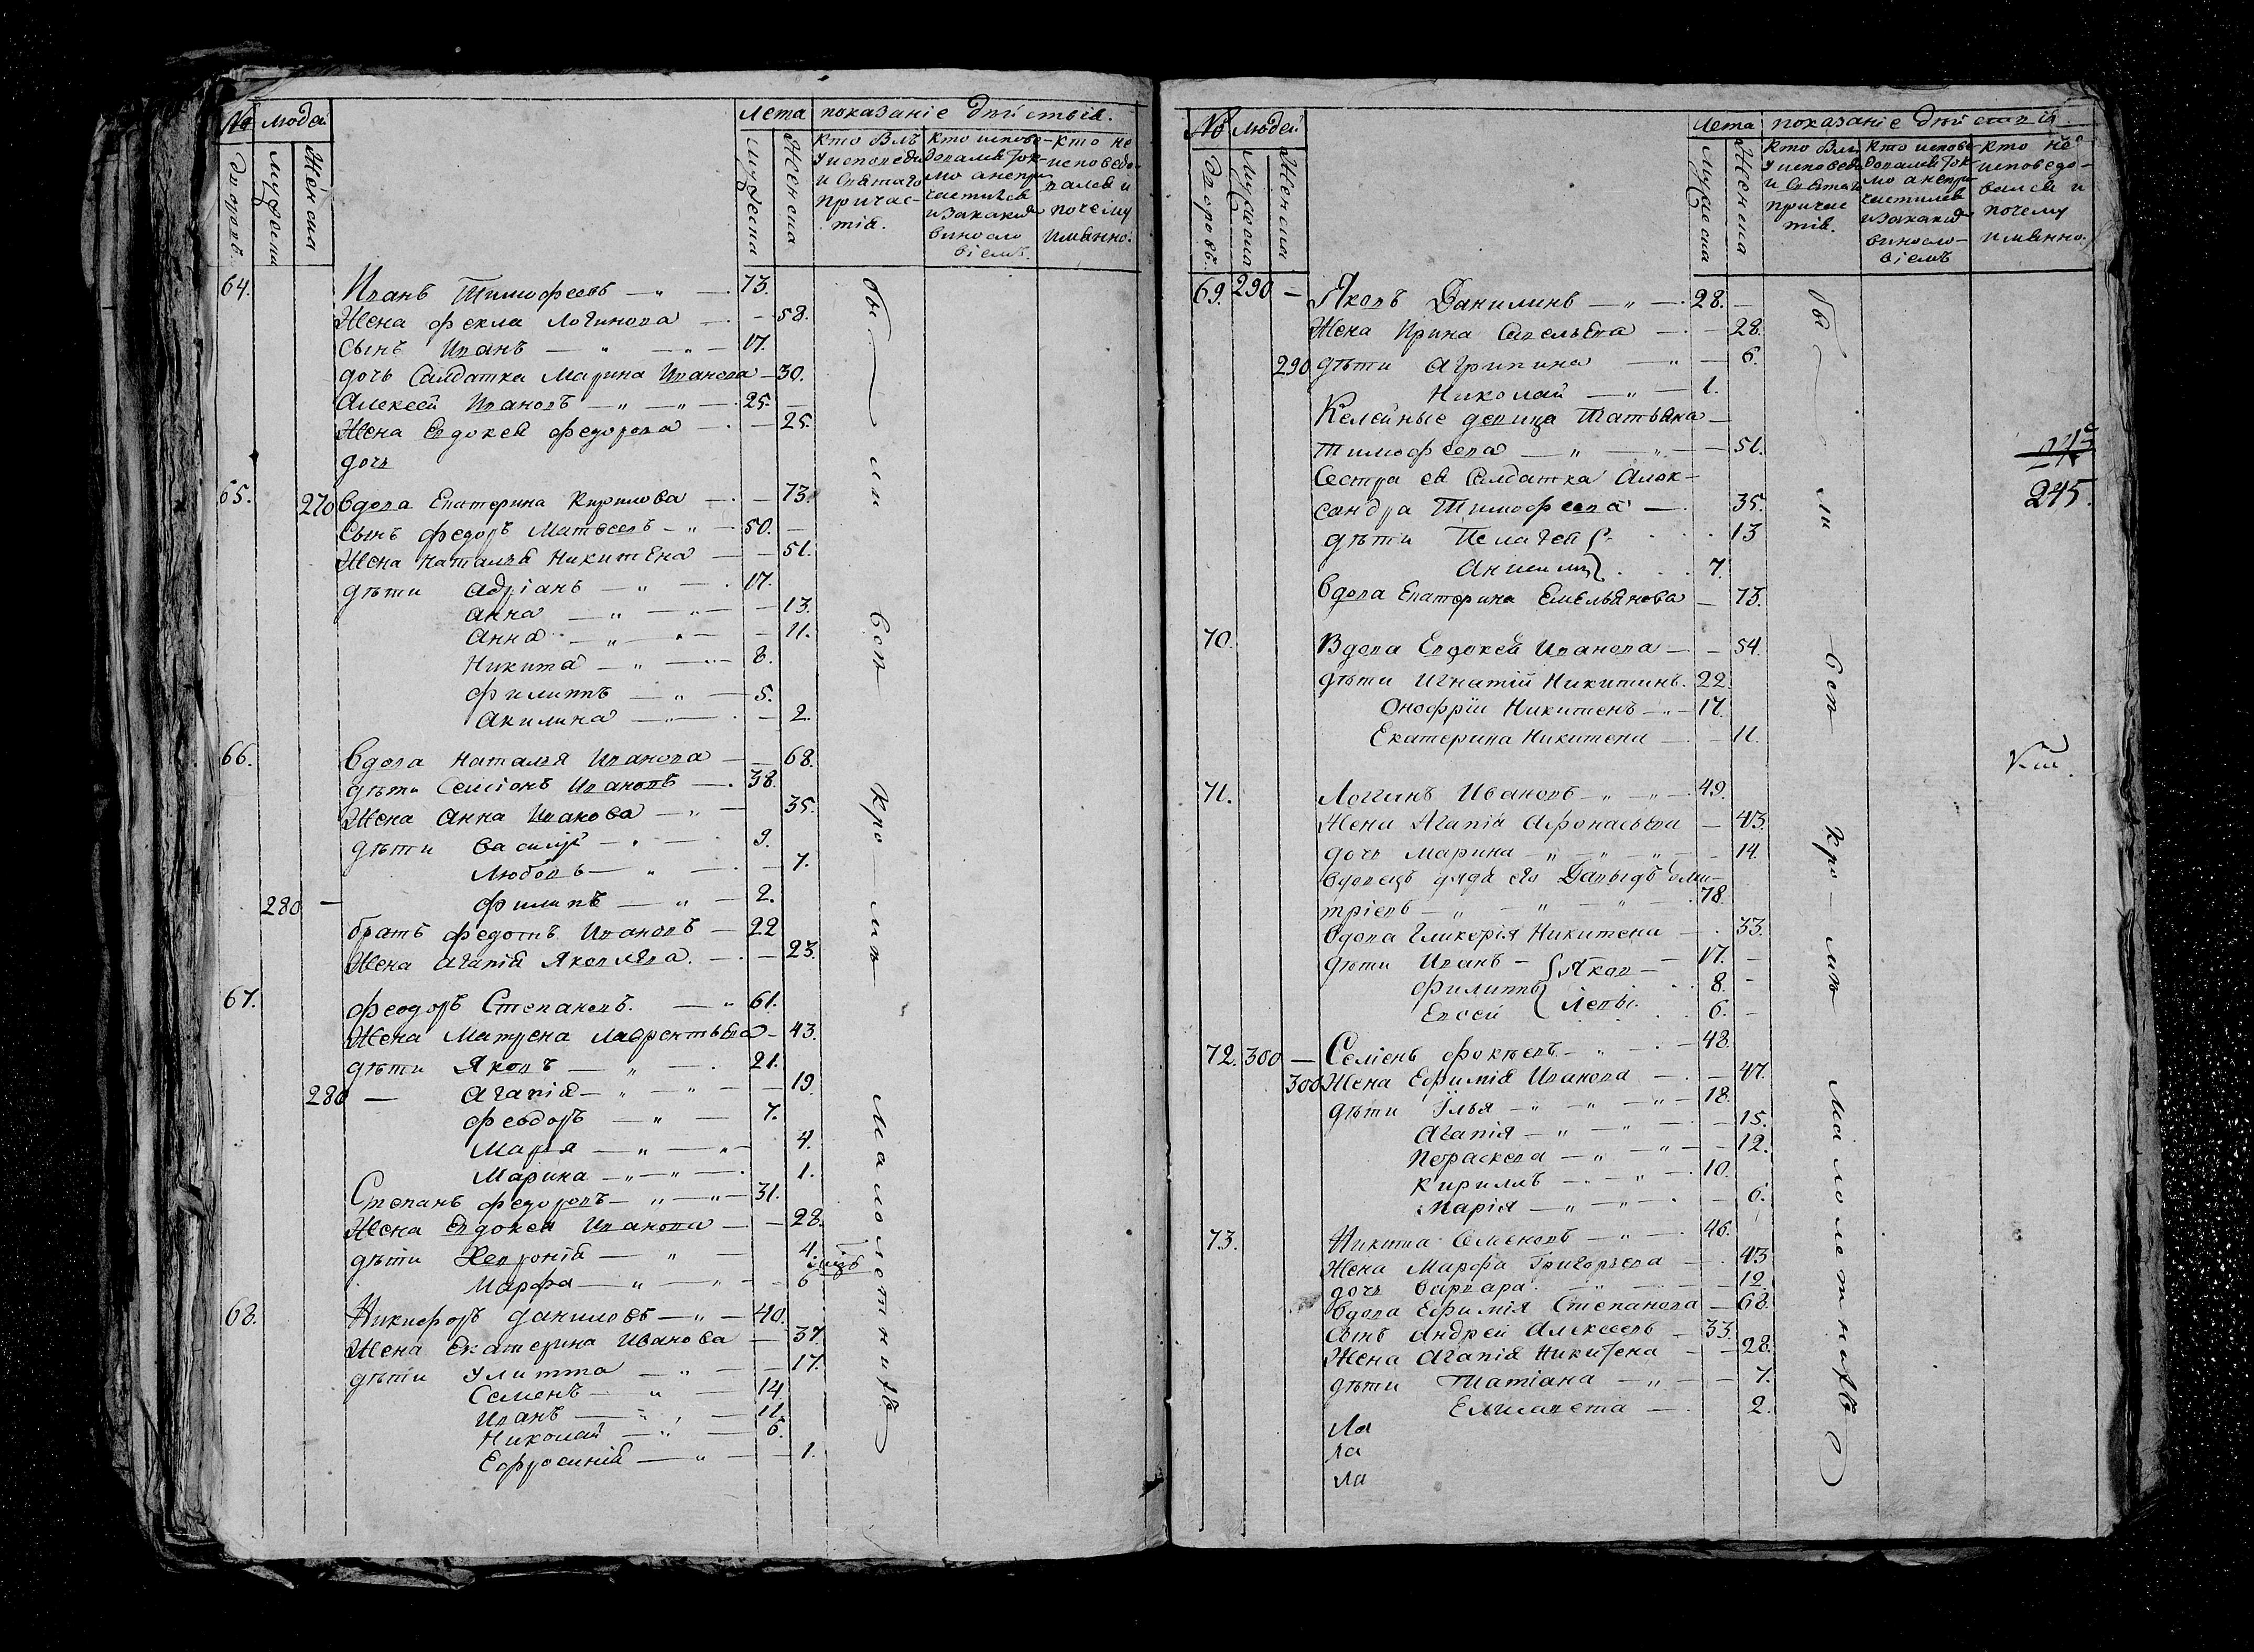 № людей Лета показаніе дѣйствія.
дворовъ. мужеска женска мужеска женска
кто былъ у исповеди и Святаго причастія.
кто исповедовался токмо а непричастился и за какимъ винословіемъ.
кто не исповедовался и почему именно.
64. Иванъ Тимофеевъ — 73.
Жена Фекла Логинова — 58.
Сынъ Иванъ — 17.
дочь Салдатка Марина Иванова — 30.
Алексей Ивановъ — 25.
Жена Евдокея Федорова — 25.
дочь
65. 270 Вдова Екатерина Кирилова — 73.
Сынъ Федоръ Матвеевъ — 50.
Жена Наталья Никитена — 51.
дѣти Адріанъ — 17.
Анна — 13.
Анна — 11.
Никита — 8.
Филиппъ — 5.
Акилина — 2.
66. Вдова Наталья Иванова — 68.
дѣти Семіонъ Ивановъ — 38.
Жена Анна Иванова — 35.
дѣти Василій — 9.
Любовь — 7.
280 — Филипъ — 2.
братъ Федотъ Ивановъ — 22
Жена Агапія Яковлева. — 23.
67. Феодоръ Степановъ. — 61.
Жена Матрена Лаврентьева — 43.
дѣти Яковъ — 21.
280 — Агапія — 19.
Феодоръ — 7.
Марья — 4.
Марина — 1.
Степанъ Федоровъ — 31.
Жена Евдокея Иванова — 28.
дѣти Хевронія — 4.
Марфа — 6
68. Никифоръ Даниловъ — 40.
Жена Екатерина Иванова — 37.
дѣти Улитта — 17.
Семенъ — 14.
Иванъ — 11.
Николай — 6.
Ефросинія — 1.
бы ли все кро мѣ малолетнихъ
№ людей Лета показаніе дѣйствія.
дворовъ. мужеска женска мужеска женска
кто былъ у исповеди и Святаго причастія.
кто исповедовался токмо а непричастился и за какимъ винословіемъ
кто не исповедовался и почему именно.
69. 290 — Яковъ Данилинъ — 28.
Жена Ирина Савельева — 28.
290 дѣти Агрипина — 6.
Николай — 1.
Келейные девица Татьяна
Тимофеева — 51.
Сестра ея Салдатка Алек-
сандра Тимофеева — 35.
дѣти Пелагея 13
Анисимъ 7.
Вдова Екатерина Емельянова — 73.
70. Вдова Евдокея Иванова — 54.
дѣти Игнатій Никитинъ. 22.
Онофрій Никитенъ — 17.
Екатерина Никитена — 11.
71. Логгинъ Ивановъ — 49.
Жена Агапія Афонасьева — 43.
дочь Марина — 14.
Вдовецъ дядя его Давыдъ Дми-
тріевъ — 78.
Вдова Гликерія Никитена — 33.
дѣти Иванъ — Яков- 17.
Филиппъ левы. 8.
Евсей 6.
72. 300 — Семіонъ Фокѣевъ — 48.
300 Жена Ефимія Иванова — 47.
дѣти Илья — 18.
Агапія — 15.
Параскева — 12.
Кириллъ — 10.
Марія — 6.
73. Никита Семеновъ — 46.
Жена Марфа Григорьева — 43
дочь Варвара. — 12
Вдова Ефимія Степанова — 68.
Сынъ Андрей Алексеевъ — 33.
Жена Агапія Никитена — 28.
дѣти Татіана — 7.
Елисавета — 2.
Ла
Ла
Ла
бы ли все кро мѣ малолетнихъ
245.